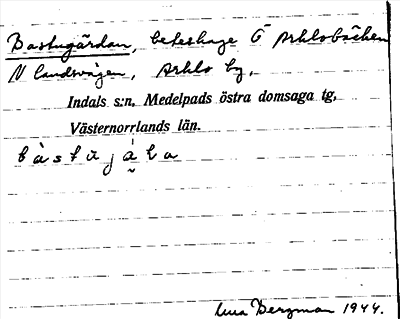 Bastugårdan, beteshage Ö Arklobäcken
N landsvägen, Arklo by.
Indals s:n, Medelpads östra domsaga tg,
Västernorrlands län.
Bergman 1944.